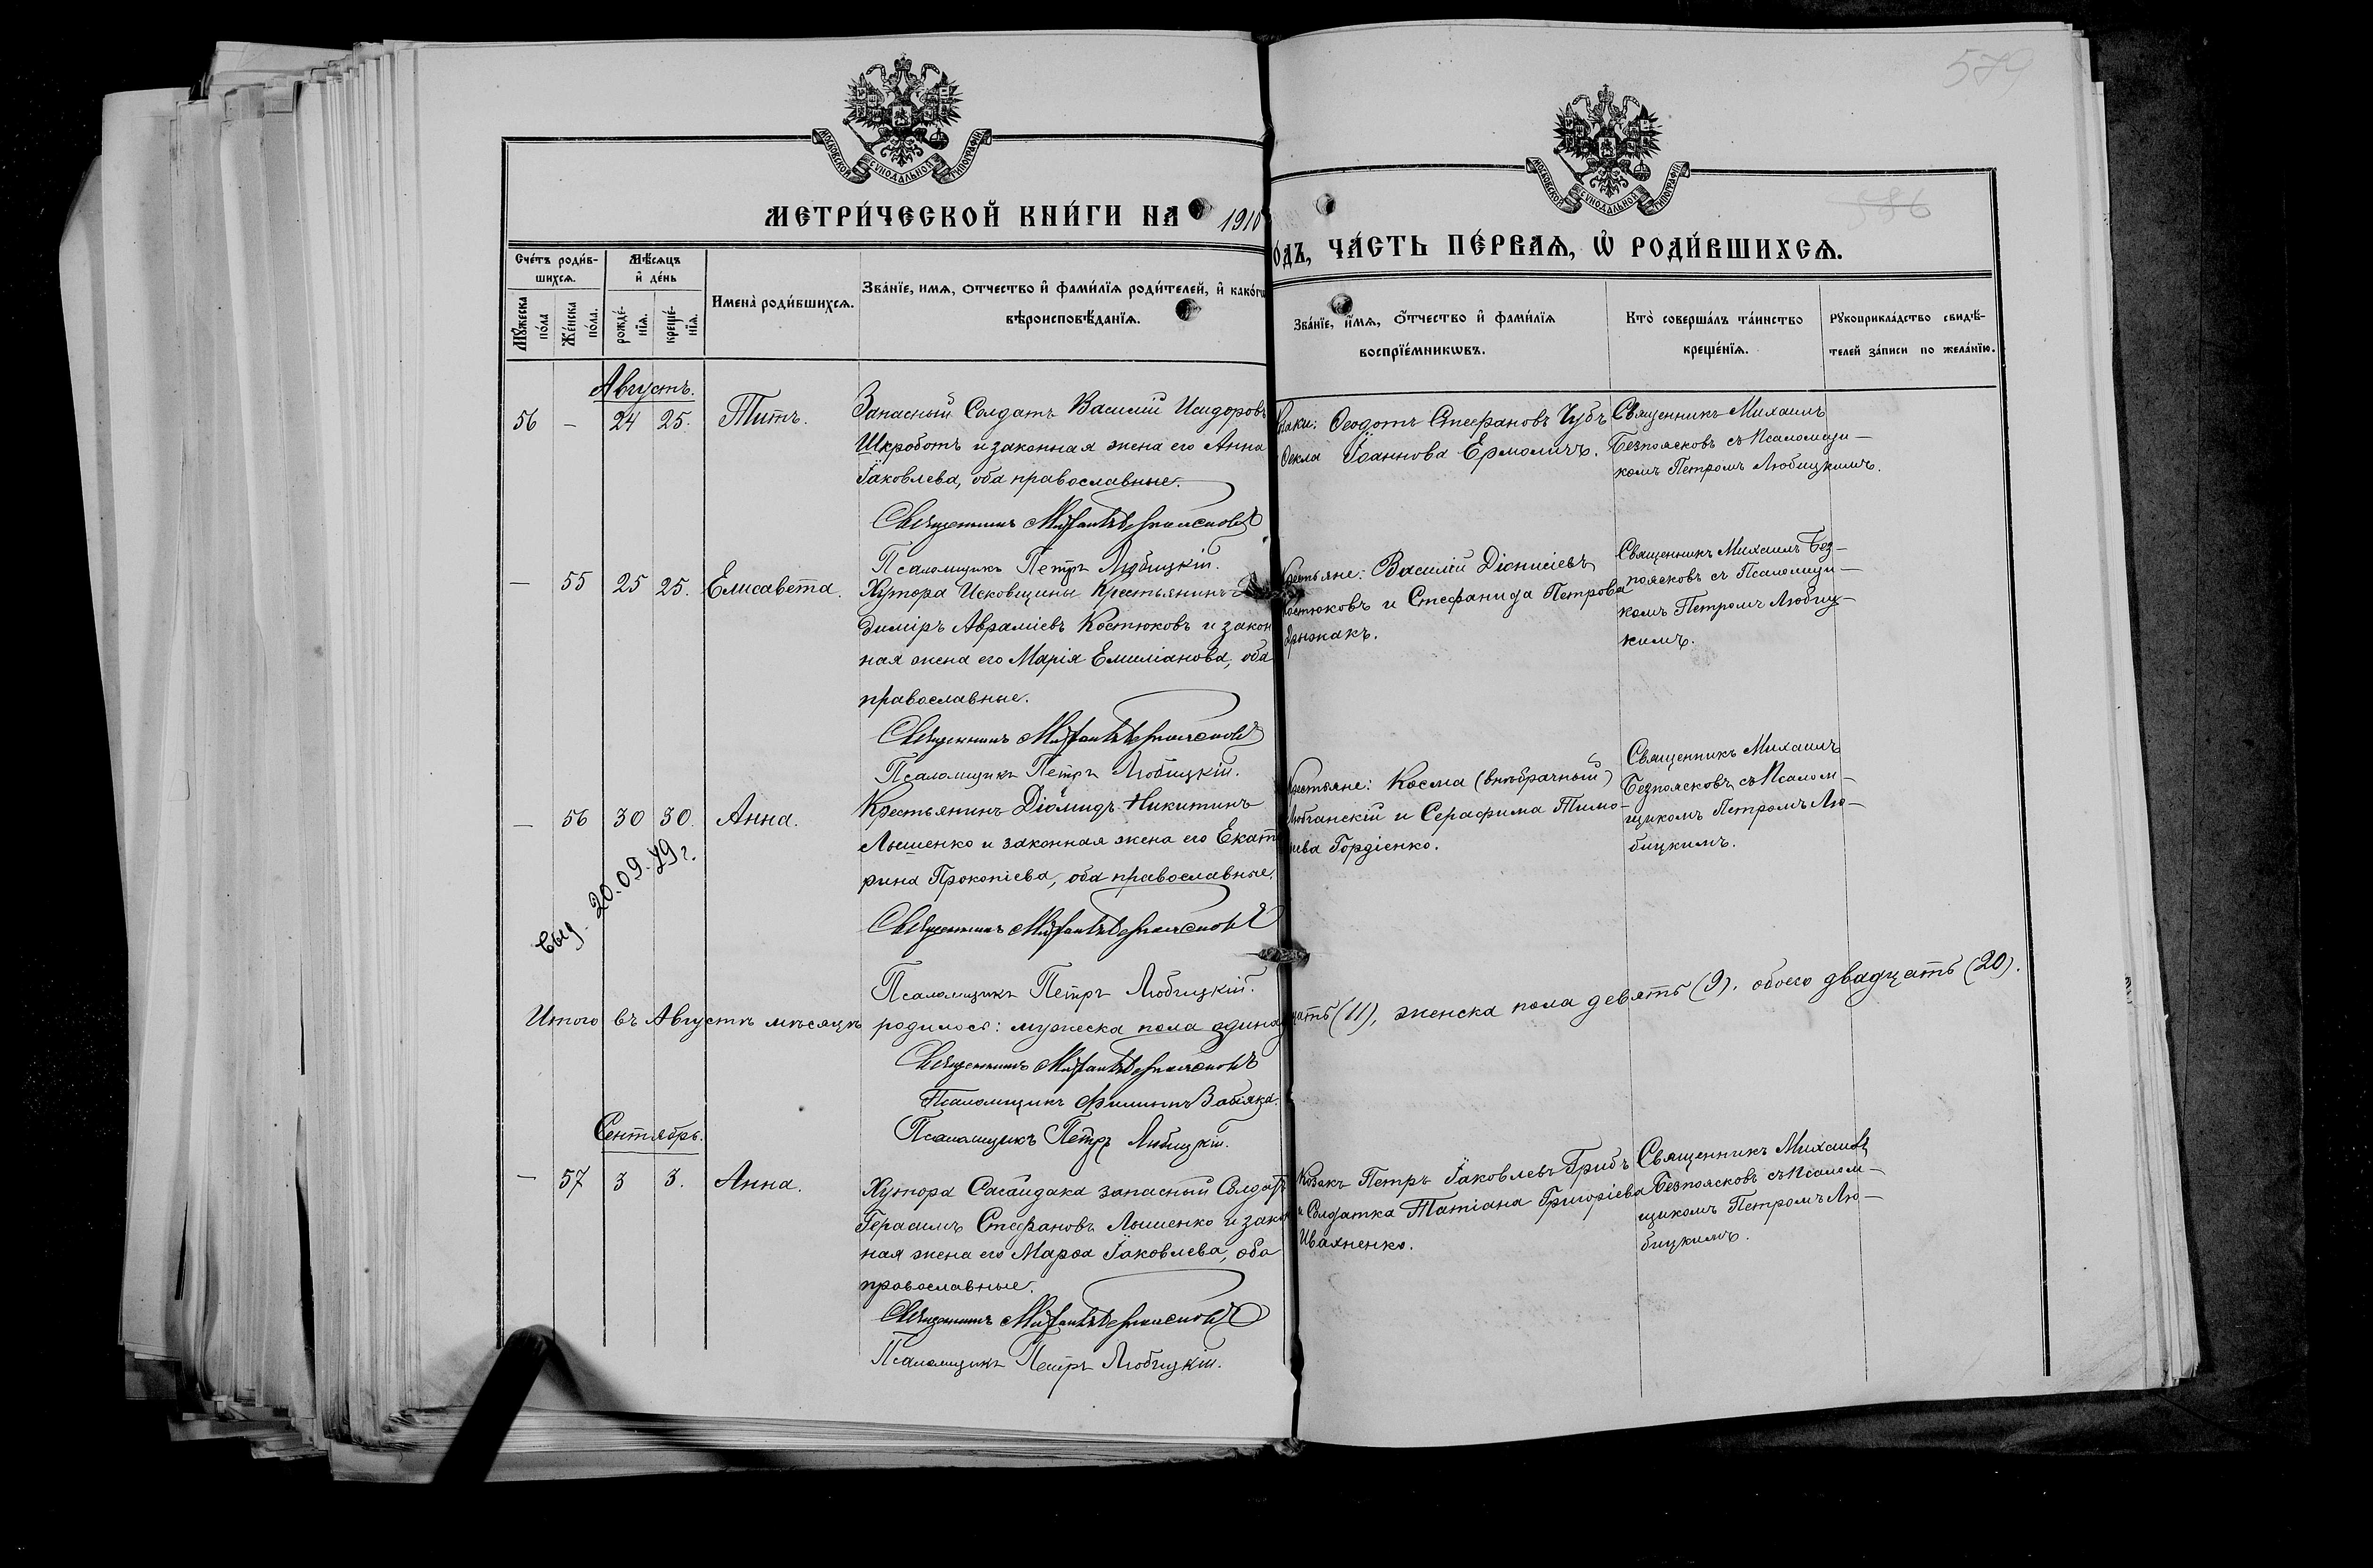 579
586
МОСКОВСКОЙ СѴНОДАЛЬНОЙ ТИПОГРАФІИ
МОСКОВСКОЙ СѴНОДАЛЬНОЙ ТИПОГРАФІИ
МЕТРИ́ЧЕСКОЙ КНИ́ГИ НА 1910
ОДЪ, ЧА́СТЬ ПЕ́РВАѦ, Ѡ РОДИ́ВШИХСѦ.
Сче́тъ роди́в-
шихсѧ.
Мꙋ́жеска
по́ла
Же́нска
по́ла.
Мѣ́сѧцъ
и҆ де́нь
рожде́-
нїѧ.
креще́-
нїѧ.
Имена̀ роди́вшихсѧ.
Зва́нїе, имѧ, отчество и҆ фами́лїѧ роди́телей, и҆ како́гѡ
вѣроисповѣ́данїѧ.
Зва́нїе, и҆́мѧ, о҆́тчество и҆ фами́лїѧ
воспрїе́мникѡвъ.
Кто̀ соверша́лъ та́инство
креще́нїѧ.
Рꙋкоприкла́дство свидѣ́-
телей за́писи по жела́нїю.
Августъ.
56 – 24 25. Титъ.
Запасный Солдатъ Василій Исидоровъ
Шкроботъ и законная жена его Анна
Іаковлева, оба православные.
Священникъ Михаилъ Безпоясковъ
Псаломщикъ Петръ Любицкій.
заки: Ѳеодотъ Стефановъ Чубъ
Ѳекла Іоаннова Ермоличъ.
Священникъ Михаилъ
Безпоясковъ съ Псаломщи-
комъ Петромъ Любицкимъ.
– 55 25 25. Елисавета.
Хутора Исковщины Крестьянинъ
диміръ Авраміевъ Костюковъ и закон
ная жена его Марія Емиліанова, оба
православные.
Священникъ Михаилъ Безпоясковъ
Псаломщикъ Петръ Любицкій.
рестьяне: Василій Діонисіевъ
остюковъ и Стефанида Петрова
Священникъ Михаилъ Без-
поясковъ съ Псаломщи-
комъ Петромъ Любиц-
кимъ.
– 56 30 30. Анна.
выд. 20.09.79 г.
Крестьянинъ Діомидъ Никитинъ
Лышенко и законная жена его Екате
рина Прокопіева, оба православные.
Священникъ Михаилъ Безпоясковъ
Псаломщикъ Петръ Любицкій.
рестьяне: Косма (внѣбрачный)
Любчанскій и Серафима Тимо-
еева Гордіенко.
Священникъ Михаилъ
Безпоясковъ съ Псалом-
щикомъ Петромъ Лю-
бицкимъ.
Итого въ Августѣ мѣсяцѣ родилось: мужеска пола одинадцать (11), женска пола девять (9), обоего двадцать (20).
Священникъ Михаилъ Безпоясковъ
Псаломщикъ Филиппъ Забіяка.
Псаломщикъ Петръ Любицкій.
Сентябрь.
– 57 3 3. Анна.
Хутора Сагайдака запасный Солдатъ
Герасимъ Стефановъ Лышенко и закон
ная жена его Марѳа Іаковлева, оба
православные.
Священникъ Михаилъ Безпоясковъ
Псаломщикъ Петръ Любицкій.
Козакъ Петръ Іаковлевъ Грибъ
и Солдатка Татіана Григоріева
Ивахненко.
Священникъ Михаилъ
Безпоясковъ съ Псалом-
щикомъ Петромъ Лю-
бицкимъ.